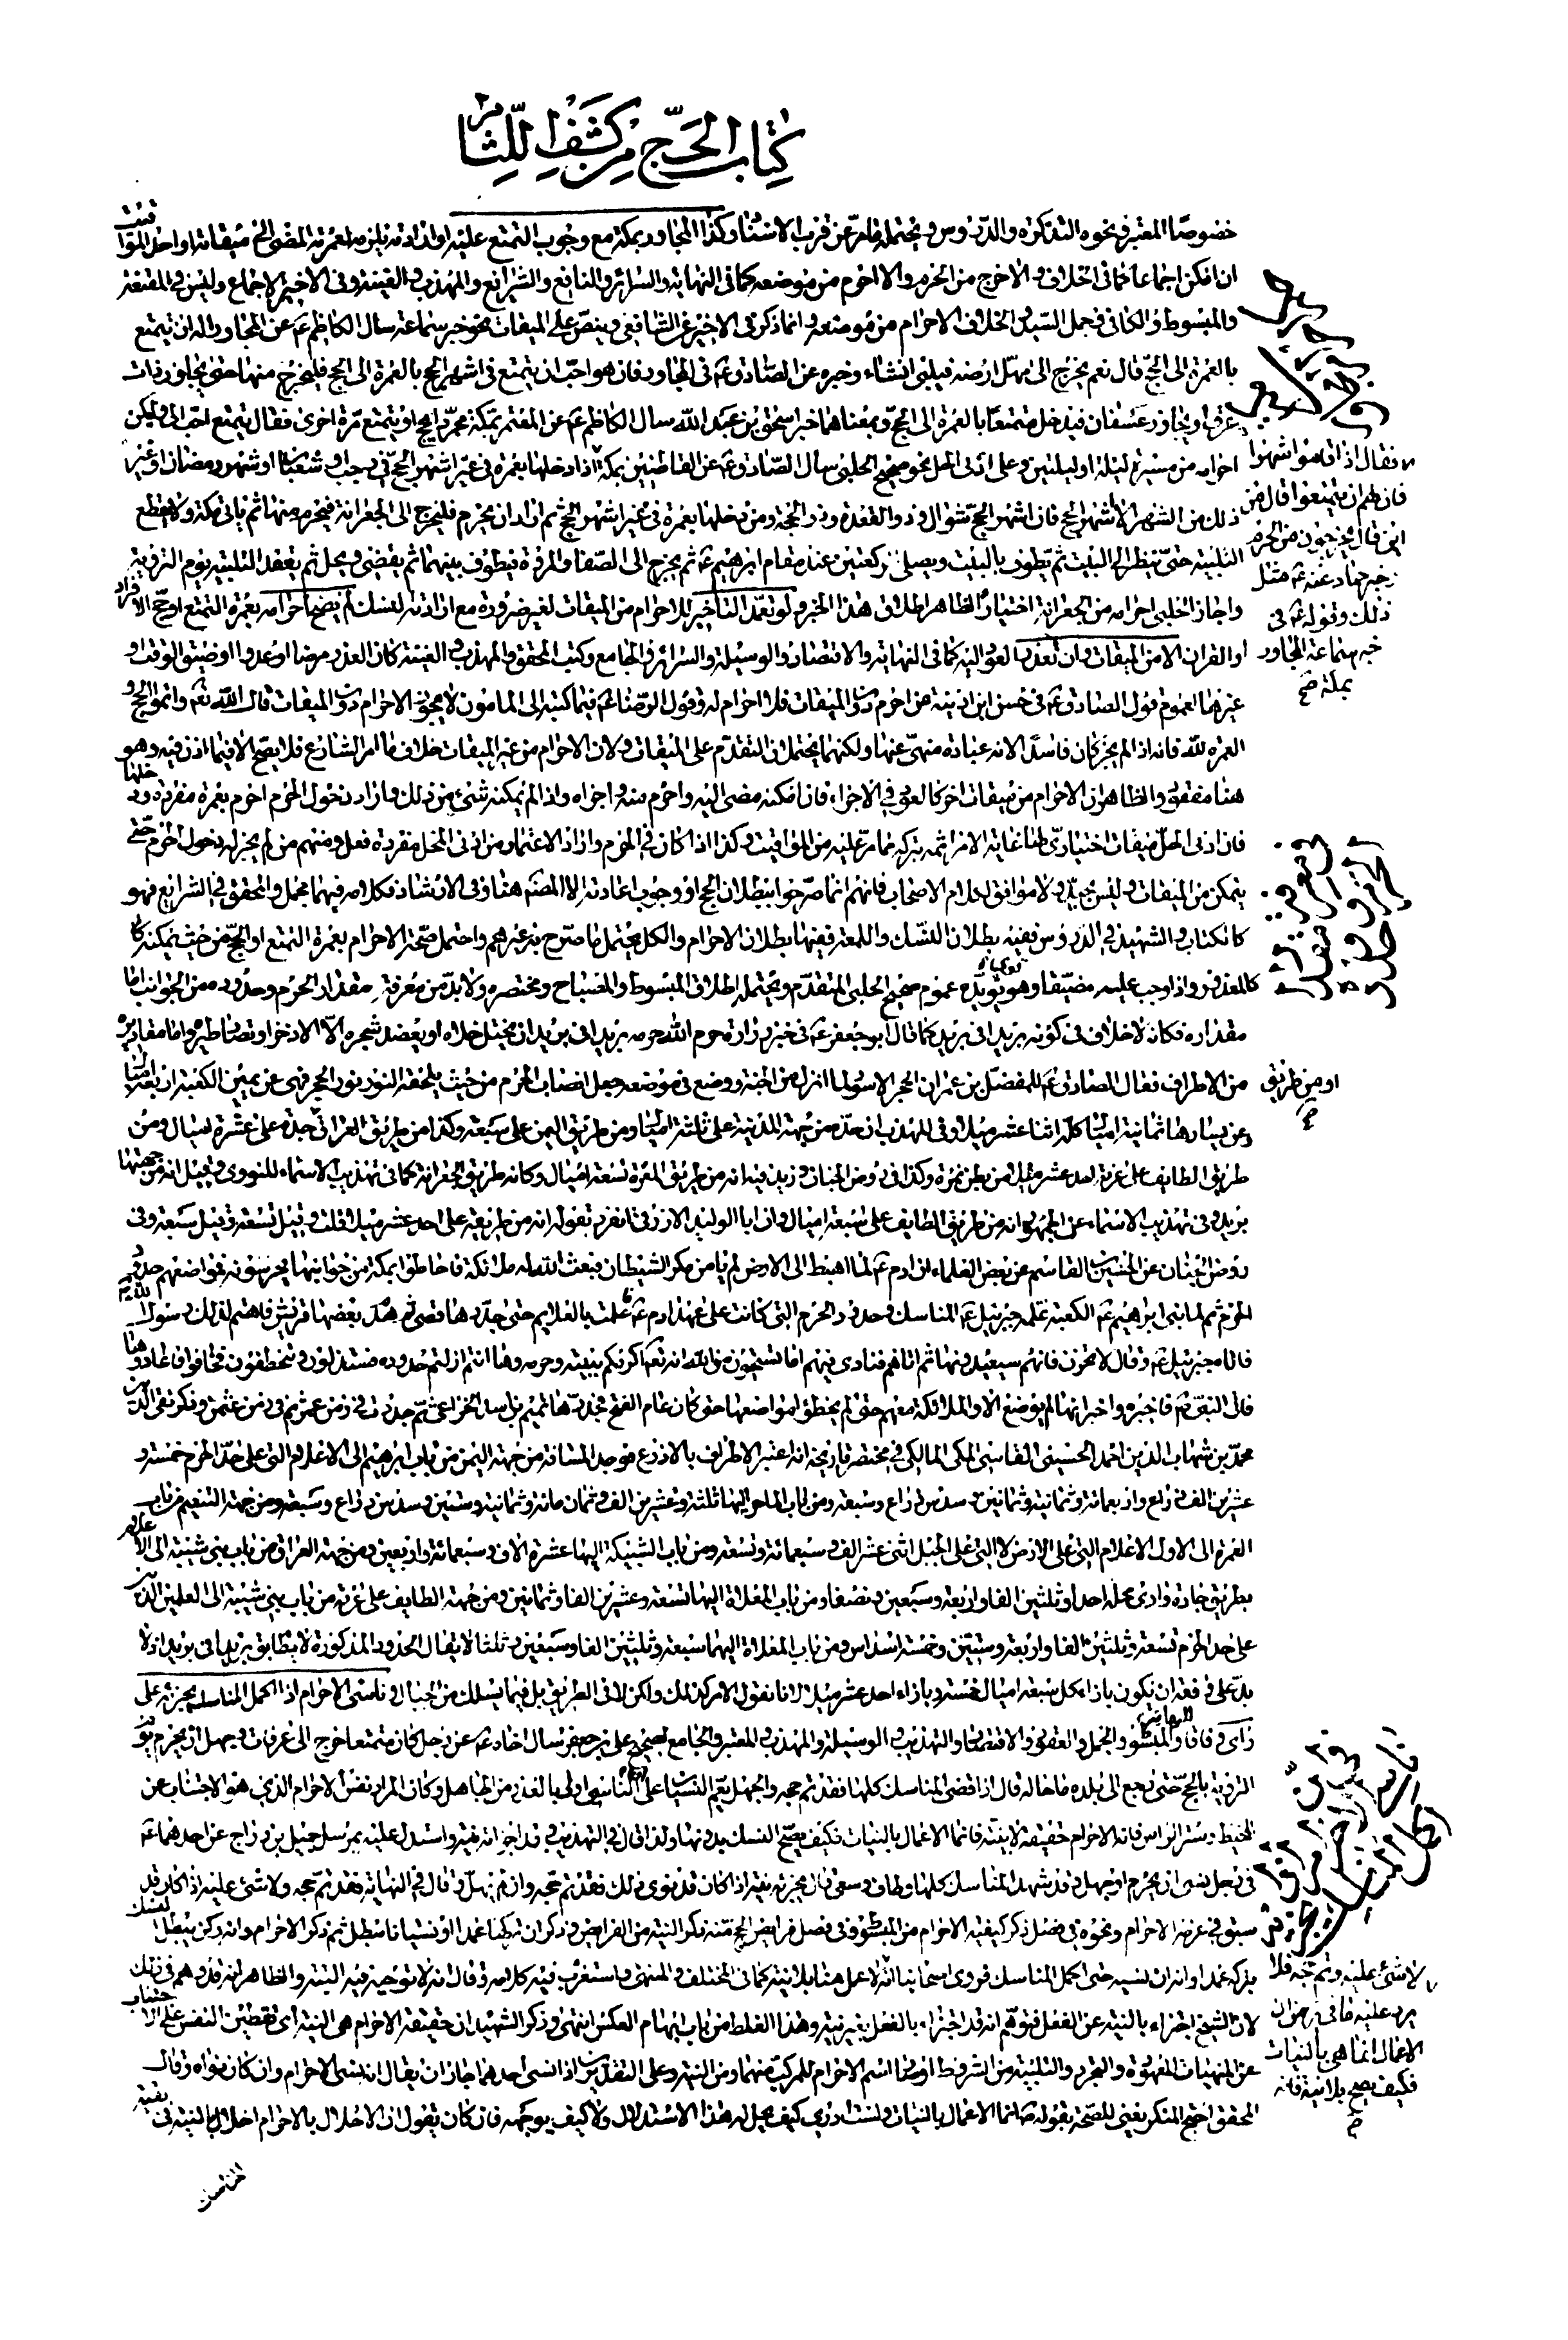 كتاب الحج من كشف اللثام
خصوصا المعتبر فنحوه التذكرة والدروس ويحتمله ما مر عن قرب الاسناد وكذا المجاور بمكة مع وجوب التمتع عليه او ارادته يلزمه لعمرته المضي الى ميقاته او احد المواقيت
ان امكن اجماعا كما في الخلاف والا خرج من الحرم والا احرم من موضعه كما في النهاية والسرائر والنافع والشرايع والمهذب والغنية وفي الاخير الاجماع وليس في المقنعة
والمبسوط والكافي وجمل السيد والخلاف الاحرام من موضعه وانما ذكر في الاخير عن الشافعي وينص على الميقات نحو خبر سماعة سال الكاظم ع عن المجاور اله ان يتمتع
بالعمرة الى الحج قال نعم يخرج الى مهل ارضه فيلبي انشاء وخبره عن الصادق ع في المجاور فان هو احب ان يتمتع في اشهر الحج بالعمرة الى الحج فليخرج منها حتى يجاوز ذات
عرق او يجاوز عسفان فيدخل متمتعا بالعمرة الى الحج وبمعناهما خبر اسحق بن عبد الله سال الكاظم ع عن المعتمر بمكة يجرد الحج او يتمتع مرة اخرى فقال يتمتع احب الي وليكن
احرامه من مسيرة ليلة او ليلتين وعلى ادنى الحل نحو صحيح الحلبي سال الصادق ع عن القاطنين بمكة اذا دخلها بعمرة في غير اشهر الحج في رجب او شعبان او شهر رمضان او غير
ذلك من الشهور الا اشهر الحج فان اشهر الحج شوال وذو القعدة وذو الحجة ومن دخلها بعمرة في غير اشهر الحج ثم اراد ان يحرم فليخرج الى الجعرانة فيحرم منها ثم ياتي مكة ولا يقطع
التلبية حتى ينظر الى البيت ثم يطوف بالبيت ويصلي ركعتين عند مقام ابرهيم ع ثم يخرج الى الصفا والمروة فيطوف بينهما ثم يقصر ويحل ثم يعقد التلبية يوم التروية
واجاز الحلبي احرامه من الجعرانة اختيارا لظاهر اطلاق هذا الخبر ولو تعمد التاخير للاحرام من الميقات لغير ضرورة مع ارادته لنسك لم يصح احرامه بعمرة التمتع او حج الافراد
او القران الا من الميقات وان تعذر العود اليه كما في النهاية والاقتصاد والوسيلة والسرائر والجامع وكتب المحقق والمهذب والغنية كان العذر مرضا او عدوا او ضيق الوقت او
غيرها لعموم قول الصادق ع في حسن ابن اذينة من احرم دون الميقات فلا احرام له وقول الرضا ع فيما كتبه الى المامون لا يجوز الاحرام دون الميقات قال الله تعالى واتموا الحج و
العمرة لله فانه اذا لم يجز كان فاسدا لانه عبادة منهي عنها ولكنهما يحتملان التقدم على الميقات ولان الاحرام من غير الميقات خلاف ما امر الشارع فلا يصح الا فيما اذن فيه وهو
هنا مفقود والظاهر ان الاحرام من ميقات اخر كالعود في الاجزاء فان امكنه مضى اليه واحرم منه واجزاه واذا لم يمكنه شيء من ذلك فاراد دخول الحرم احرم بعمرة مفردة ودخلها
فان ادنى الحل ميقات اختياري لها غاية الامر اثمه بتركه مما مر عليه من المواقيت وكذا اذا كان في الحرم واراد الاعتمار من ادنى الحل مفردة فعل ومنهم من لم يجز له دخول الحرم حتى
يتمكن من الميقات وليس بجيد ولا موافق لكلام الاصحاب فانهم انما صرحوا ببطلان الحج او وجوب اعادته الا المصنف هنا وفي الارشاد فكلامه فيهما مجمل والمحقق في الشرايع فهو
كالكتاب والشهيد في الدروس ففيه بطلان النسك واللمعة ففيها بطلان الاحرام والكل يحتمل ما صرح به غيرهم واحتمل صحة الاحرام بعمرة التمتع او الحج من حيث يمكنه كا
كالمعذور واذا وجب عليه مضيقا وهو قوي يؤيده عموم صحيح الحلبي المتقدم ويحتمله اطلاق المبسوط والمصباح ومختصره ولا بد من معرفة مقدار الحرم وحدوده من الجوانب اما
مقداره فكانه لا خلاف في كونه بريدا في بريد كما قال ابو جعفر ع في خبر زرارة حرم الله حرمه بريدا في بريد ان يختلى خلاه او يعضد شجره الا الاذخر او يصاد طيره واما مقاديره
من الاطراف فقال الصادق ع للمفضل بن عمر ان الحجر الاسود لما انزل من الجنة ووضع في موضعه جعل انصاب الحرم من حيث يلحقه النور نور الحجر فهي عن يمين الكعبة اربعة اميال
وعن يسارها ثمانية اميال كله اثنا عشر ميلا وفي المهذب ان حده من جهة المدينة على ثلثة اميال ومن طريق اليمن على سبعة وكذا من طريق العراق ومن جدة على عشرة اميال ومن
طريق الطايف على عرنة احد عشر ميلا من بطن نمرة وكذا في روض الجنان وزيد فيه انه من طريق الجعرانة تسعة اميال وكانه طريق الجعرانة كما في تهذيب الاسماء للنووي وقيل انه من جهتها
بريد وفي تهذيب الاسماء عن الجمهور انه من طريق الطايف على سبعة اميال وان ابا الوليد الازرقي انفرد بقوله انه من طريقه على احد عشر ميلا قلت وقيل تسعة وقيل سبعة وفي
روض الجنان عن الحسين بن القاسم عن بعض العلماء ان ادم ع لما اهبط الى الارض لم يامن مكر الشيطان فبعث الله له ملائكة فاحاطوا بمكة من جوانبها يحرسونه فمواضعهم حدود
الحرم ثم لما بنى ابرهيم ع الكعبة علمه جبرئيل ع المناسك وحدود الحرم التي كانت على عهد ادم ع فاعلمت بالعلايم حتى جددها قصي ثم هدت بعضها قريش فاهتم لذلك رسول الله ص
فاتاه جبرئيل ع وقال لا تحزن فانهم سيعيدونها ثم اتاهم فنادى فيهم اما تستحيون من الله انه تعالى اكرمكم ببيته وحرمه وها انتم ازلتم حدوده ستذلون وتخطفون فخافوا فاعادوها
فاتى النبي ص فاخبره واخبر انها لم يوضع الا والملائكة معهم حتى لم يخطؤا مواضعها حتى كان عام الفتح فجددها تميم بن اسد الخزاعي ثم جددت في زمن عمر ثم في زمن عثمن وذكر تقي الدين
محمد بن شهاب الدين احمد الحسيني الفاسي المكي المالكي في مختصر تاريخه انه اعتبر الاطراف بالاذرع فوجد المسافة من جهة اليمن من باب ابرهيم الى الاعلام التي على حد الحرم خمسة و
عشرين الف ذراع واربعمائة وثمانية وثمانين وسدس ذراع وسبعه ومن باب الماجن اليها ثلثة وعشرين الف وثمان مائة وثمانية وستين وسدس ذراع وسبعه ومن جهة التنعيم من باب
العمرة الى الاول الاعلام التي على الارض لا التي على الجبل اثنى عشر الف وسبعمائة وتسعة ومن باب الشبيكة اليها عشرة الاف وسبعمائة واربعين ومن جهة العراق من باب بني شيبة الى الاعلام
بطريق جادة وادي نخلة احدا وثلثين الفا واربعة وسبعين ونصفا ومن باب المعلاة اليها تسعة وعشرين الفا وثمانين ومن جهة الطايف على عرنة من باب بني شيبة الى العلمين الذين
على حد الحرم تسعة وثلثين الفا واربعة وستين وخمسة اسداس ومن باب المعلاة اليهما سبعة وثلثين الفا وسبعين وثلثا لا يقال الحدود المذكورة لا يطابق بريدا في بريد اذ لا
بد على فرقه ان يكون بازاء كل سبعة اميال خمسة وبازاء احد عشر ميلا لانا نقول الامر كذلك ولكن لا في الطريق بل فيما يسلك من الجبال وناسي الاحرام اذا اكمل المناسك يجزئه على
راي وفاقا والمبسوط والجمل والعقود والاقتصاد والتهذيب والوسيلة والمهذب والمعتبر والجامع لصحيح علي بن جعفر سال اخاه ع عن رجل كان متمتعا خرج الى عرفات وجهل ان يحرم يوم
التروية بالحج حتى رجع الى بلده ما حاله قال اذا قضى المناسك كلها فقد تم حجه والجهل يعم النسيان على ان الناسي اولى بالعذر من الجاهل وكان المراد نفس الاحرام الذي هو الاجتناب عن
المخيط وستر الراس فانه الاحرام حقيقة لا بنية فانما الاعمال بالنيات فكيف يصح النسك بدونها ولذا قال في التهذيب وقد اجزاته نيته واستدل عليه بمرسل جميل بن دراج عن احدهما ع
في رجل نسي ان يحرم او جهل وقد شهد المناسك كلها وطاف وسعى قال يجزئه نيته اذا كان قد نوى ذلك فقد تم حجه وان لم يهل وقال في النهاية فقد تم حجه ولا شيء عليه اذا كان قد
سبق في عزمه الاحرام ونحوه في فصل ذكر كيفية الاحرام من المبسوط وفي فصل فرايض الحج منه ذكر النية من الفرايض وذكر ان تركها عمدا او نسيانا مبطل ثم ذكر الاحرام وانه ركن يبطل النسك
بتركه عمدا وان نسيه حتى اكمل المناسك فروى اصحابنا انه لا عمل هنا بلا نية كما في المختلف والمنتهى واستغرب فيه كلامه وقال انه لا توجيه فيه البتة والظاهر انه قد وهم في ذلك
لان الشيخ اجتزاء بالنية عن الفعل فتوهم انه قد اجتزاء بالفعل بغير نية وهذا الغلط من باب ايهام العكس انتهى وذكر الشهيد ان حقيقة الاحرام هي النية اي توطين النفس على الاجتناب
عن المنهيات المعهودة والتجرد والتلبية من الشروط او ان اسم الاحرام للمركب منهما ومن النية وعلى التقديرين اذا نسي احدهما جاز ان يقال انه نسي الاحرام وان كان نواه وقال
المحقق احتج المنكر يعني للصحة بقوله ص انما الاعمال بالنيات ولست ادري كيف يحل له هذا الاستدلال ولا كيف يوجهه فان كان يقول ان الاخلال بالاحرام اخلال بالنية في بقية
المناسك
فقال اذا اقاموا شهرا
فان لهم ان يتمتعوا قال من
اين قال يخرجون من الحرم
وخبر حماد عنه ع مثل
ذلك وقوله ع في
خبر سماعة المجاور
بمكة صح
او من طريق
صح
ولا شيء عليه وتم حجه فلا
يرد عليه ما في ئر من ان
الاعمال انما هي بالنيات
فكيف يصح بلا نية فانه
صح